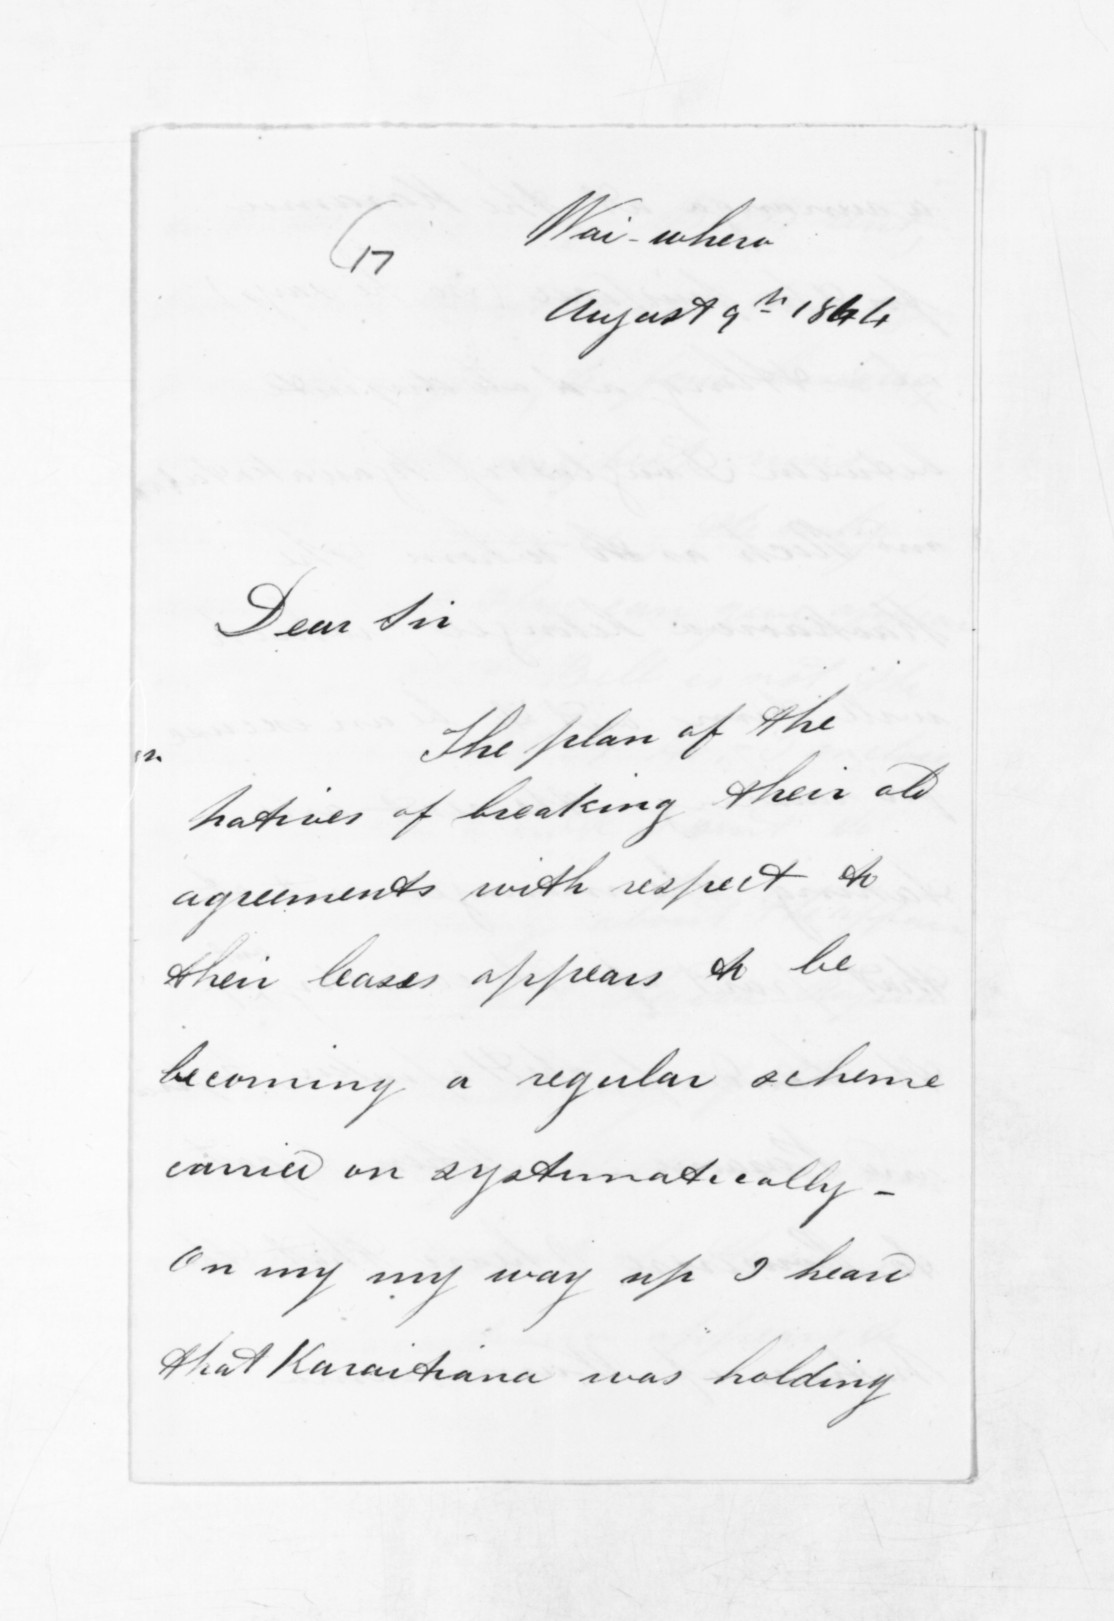 (17
Wai-whero
August 9th 1864
Dear Sir
The plan of the
natives of breaking their old
agreements with respect to
their leases appears to be
becoming a regular scheme
carried on systematically -
On my my way up I heard
that Karaitiana was holding